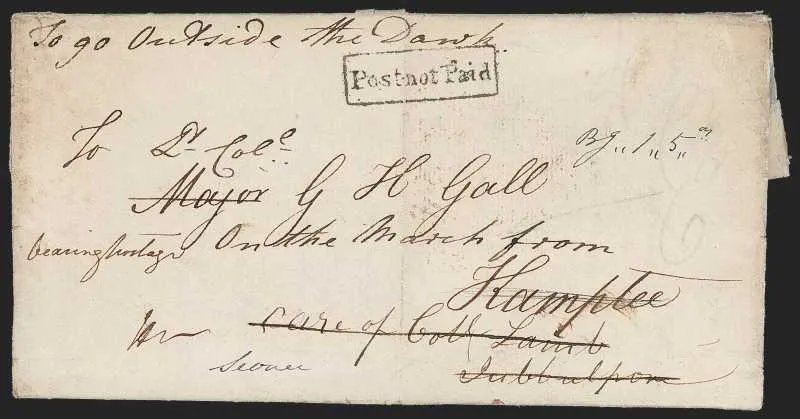 To go Outside the Dawk
Post not Paid
To Lt. Colе
Bg,, 1,, 5,, as
Major G H Gall
bearing postage On the March from
Kamptee
care of Coll Lamb
Jubbulpore